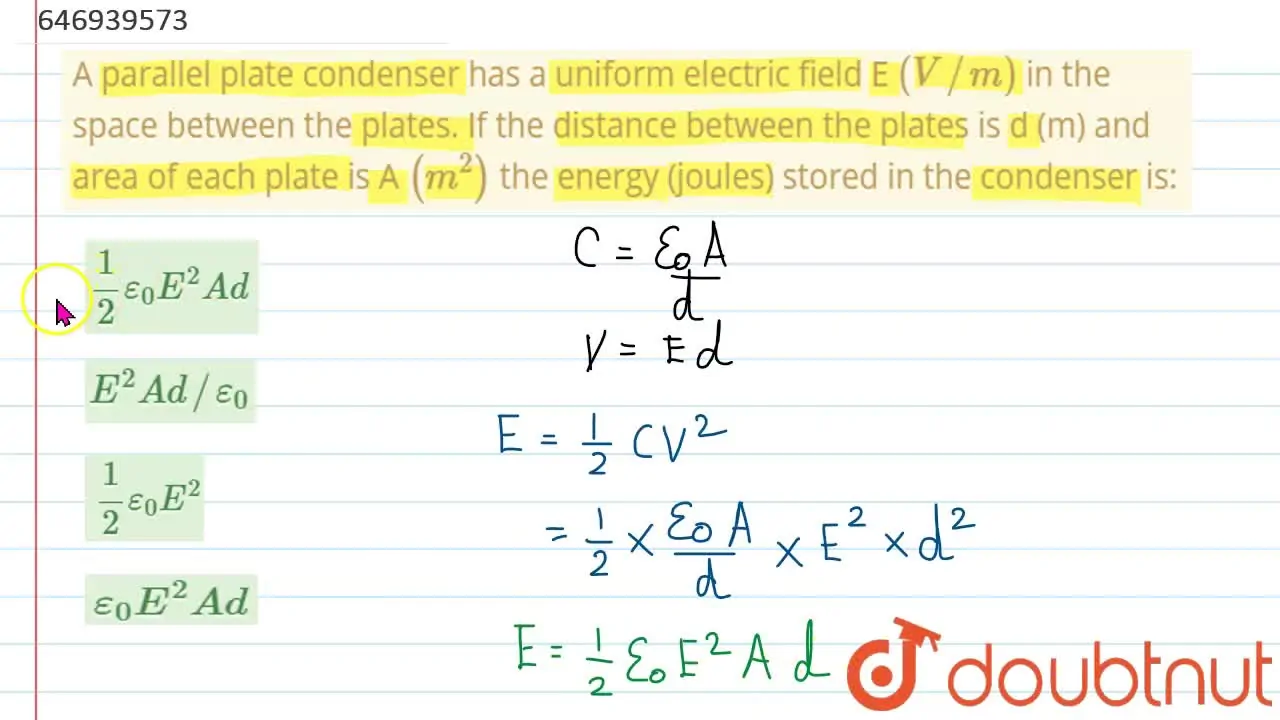 646939573
A parallel plate condenser has a uniform electric field E (V/m) in the
space between the plates. If the distance between the plates is d (m) and
area of each plate is A (m²) the energy (joules) stored in the condenser is:
1/2 ε₀E²Ad
E²Ad/ε₀
1/2 ε₀E²
ε₀E²Ad
C = ε₀A/d
V = Ed
E = 1/2 CV²
= 1/2 × ε₀A/d × E² × d²
E = 1/2 ε₀E²Ad
doubtnut